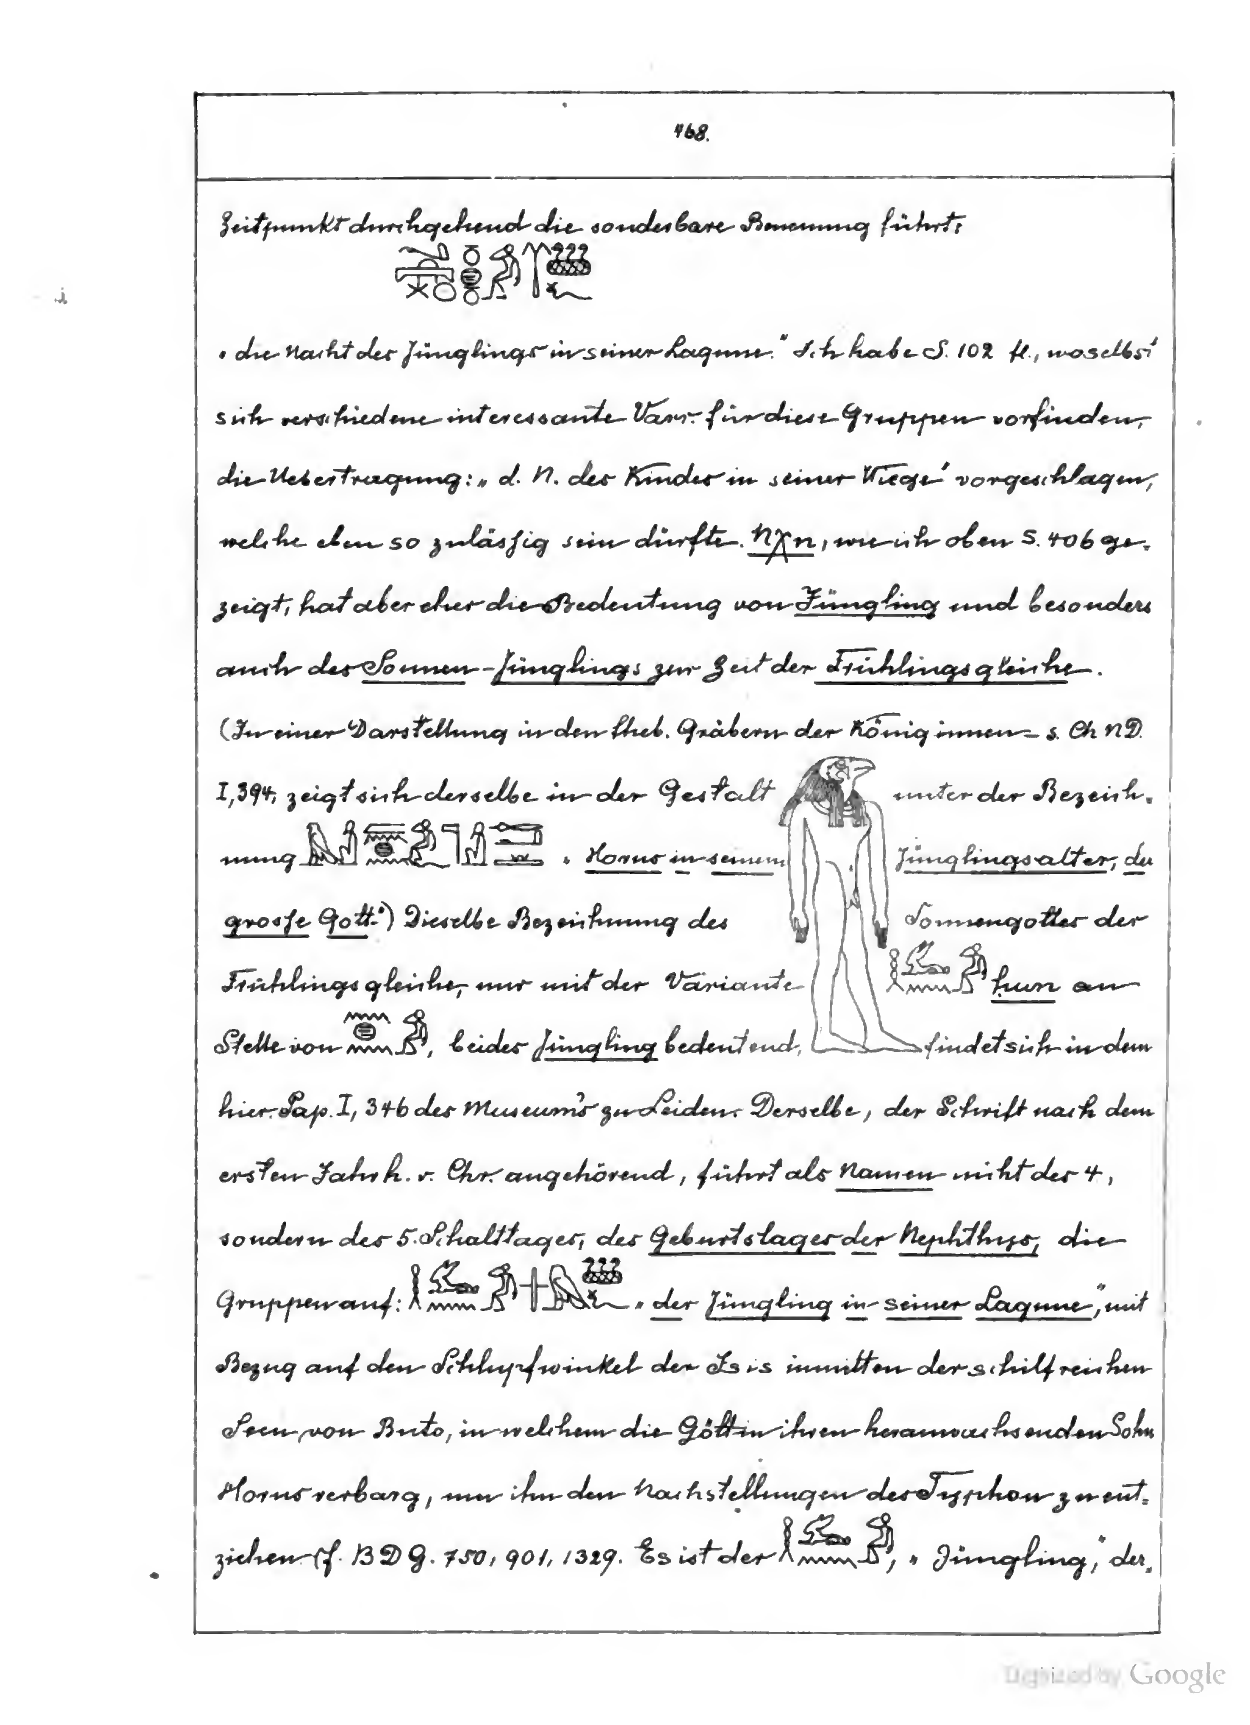 468.
Zeitpunkt durchgehend die sonderbare Benennung führt:
„die Nacht des Jünglings in seiner Lagune." Ich habe S. 102 fl., woselbst
sich verschiedene interessante Varr. für diese Gruppen vorfinden,
die Uebertragung: „d. N. des Kindes in seiner Wiege" vorgeschlagen,
welche eben so zulässig sein dürfte. nχn, wie ich oben S. 406 ge-
zeigt, hat aber eher die Bedeutung von Jüngling und besonders
auch des Sonnen-Jünglings zur Zeit der Frühlingsgleiche.
(In einer Darstellung in den theb. Gräbern der Königinnen = s. Ch ND.
I, 394, zeigt sich derselbe in der Gestalt unter der Bezeich-
nung „Horus in seinem Jünglingsalter, der
grosse Gott.") Dieselbe Bezeichnung des Sonnengottes der
Frühlingsgleiche, nur mit der Variante ḥun an
Stelle von , beides Jüngling bedeutend, findet sich in dem
hier. Pap. I, 346 des Museum's zu Leiden. Derselbe, der Schrift nach dem
ersten Jahrh. v. Chr. angehörend, führt als Namen nicht des 4,
sondern des 5. Schalttages, des Geburtstages der Nephthys, die
Gruppen auf: „der Jüngling in seiner Lagune", mit
Bezug auf den Schlupfwinkel der Isis inmitten der schilfreichen
Seen von Buto, in welchem die Göttin ihren heranwachsenden Sohn
Horus verbarg, um ihn den Nachstellungen des Typhon zu ent-
ziehen cf. BDG. 750, 901, 1329. Es ist der , „Jüngling", der,
Digitized by Google